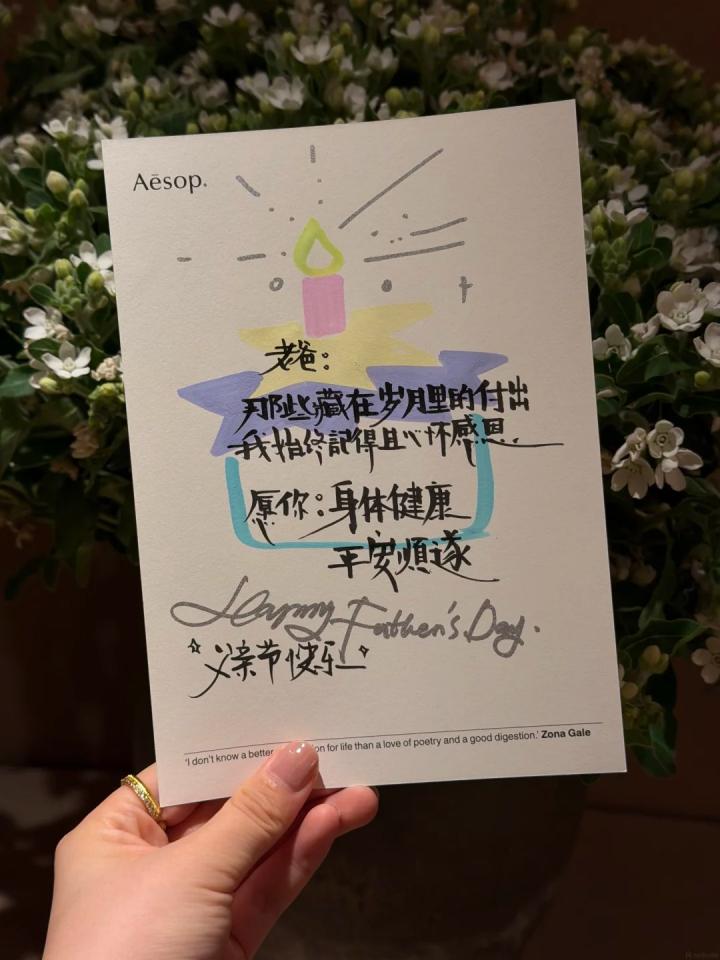 Aēsop.
老爸：
那些藏在岁月里的付出
我始终記得且心怀感恩.
愿你：身体健康
平安順遂
Happy Father's Day.
父亲节快乐
'I don't know a better on for life than a love of poetry and a good digestion.' Zona Gale